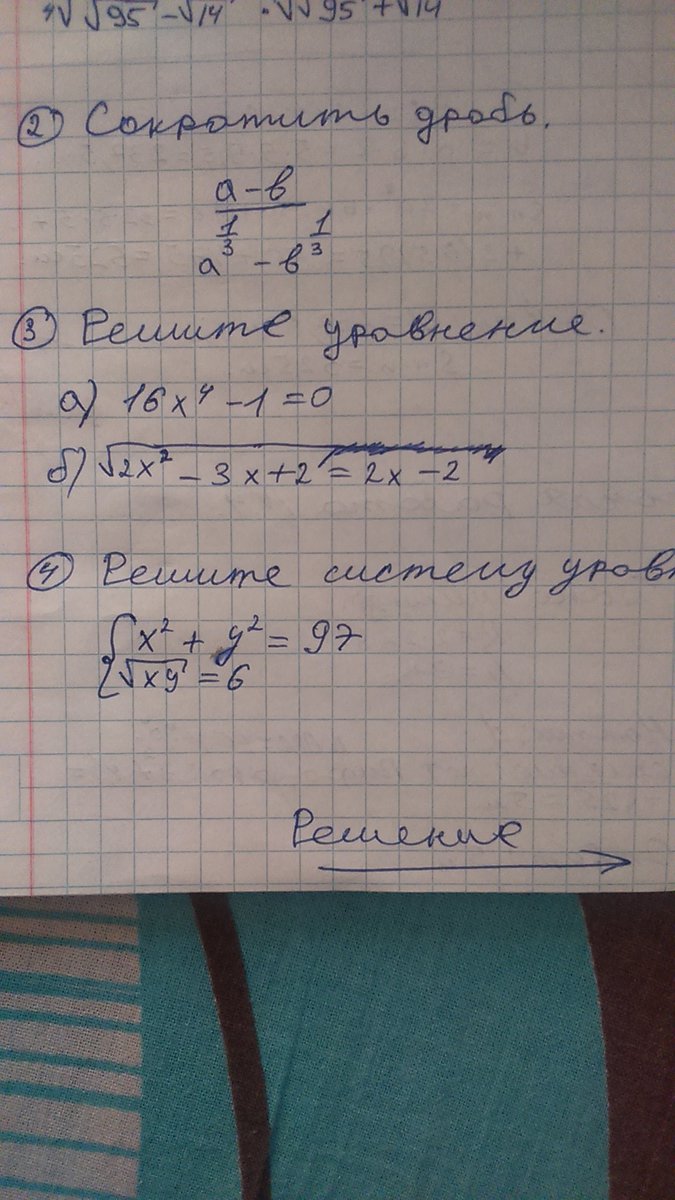 ⁴√√95 - √14 · ⁴√√95 + √14
② Сократить дробь.
a - b
a^(1/3) - b^(1/3)
③ Решите уравнение.
а) 16x⁴ - 1 = 0
б) √2x² - 3x + 2 = 2x - 2
④ Решите систему уравн
{ x² + y² = 97
√xy = 6
Решение